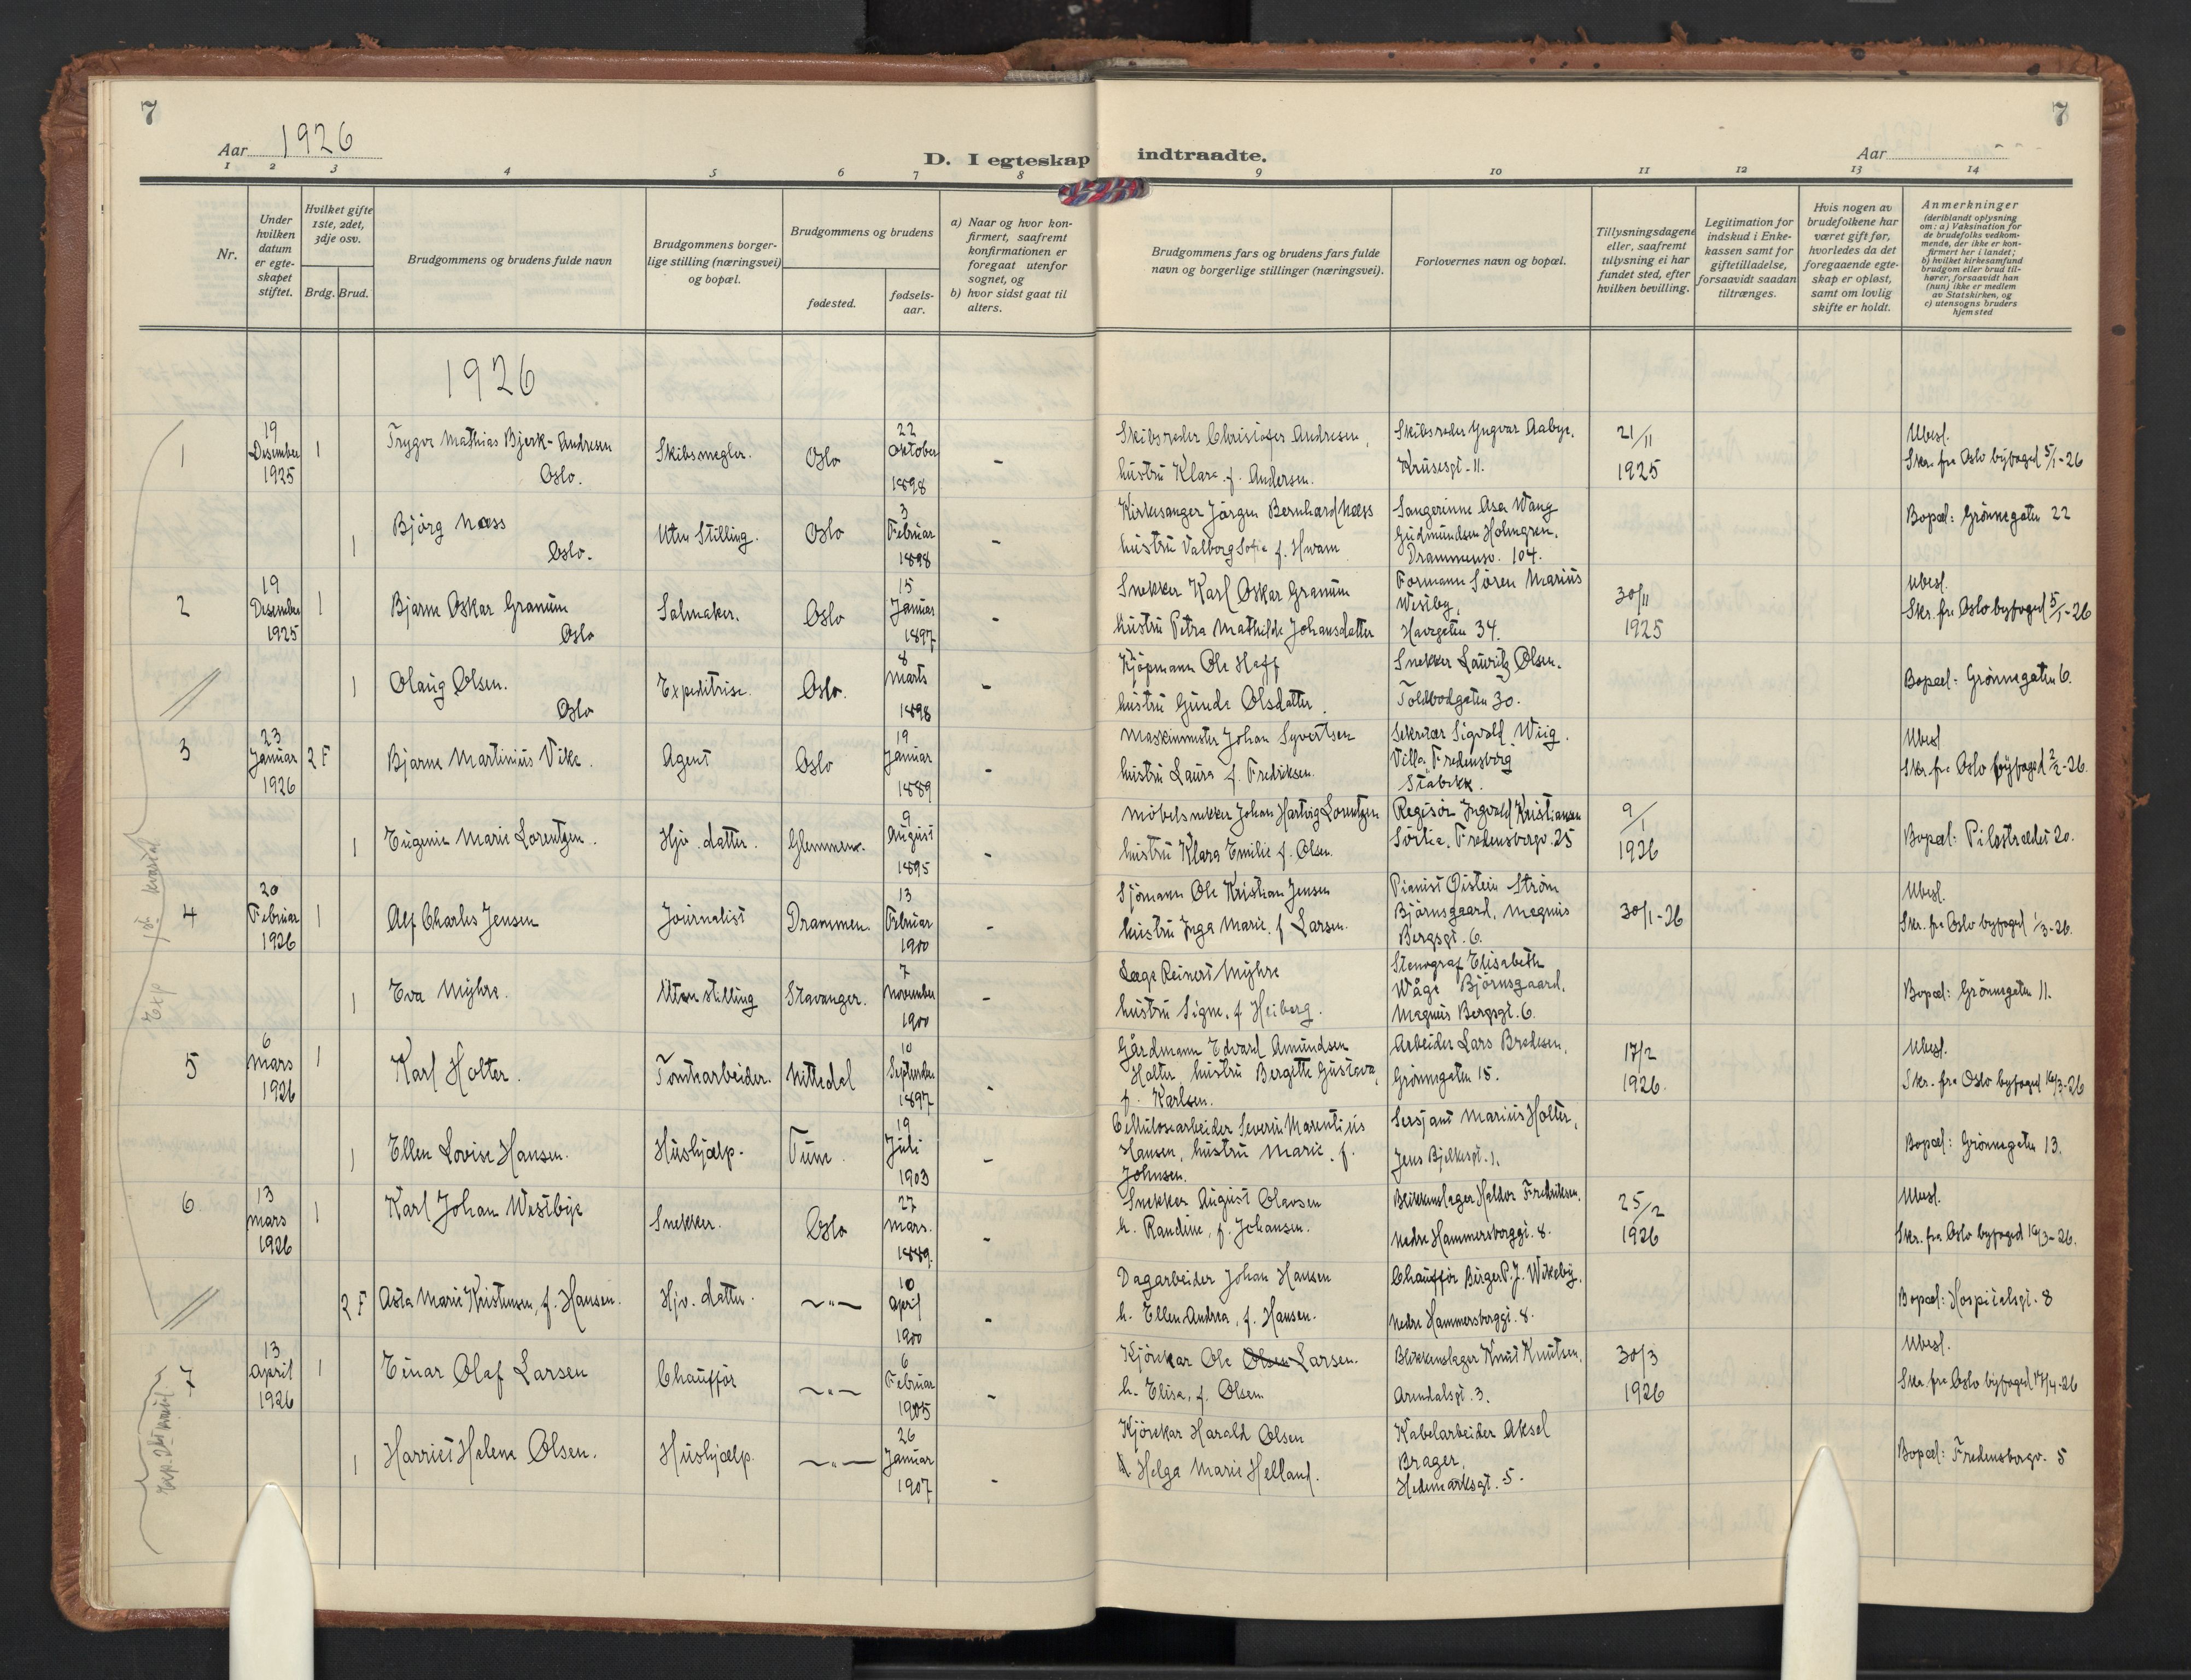 7
7
Aar 1926
D. I egteskap indtraadte.
Aar
1 2 3 4 5 6 7 8 9 10 11 12 13 14
Nr.
Under
hvilken
datum
er egte-
skapet
stiftet.
Hvilket gifte
1ste, 2det,
3dje osv.
Brdg. Brud.
Brudgommens og brudens fulde navn
Brudgommens borger-
lige stilling (næringsvei)
og bopæl.
Brudgommens og brudens
fødested.
fødsels-
aar.
a) Naar og hvor kon-
firmert, saafremt
konfirmationen er
foregaat utenfor
sognet, og
b) hvor sidst gaat til
alters.
Brudgommens fars og brudens fars fulde
navn og borgerlige stillinger (næringsvei).
Forlovernes navn og bopæl.
Tillysningsdagene
eller, saafremt
tillysning ei har
fundet sted, efter
hvilken bevilling.
Legitimation for
indskud i Enke-
kassen samt for
giftetilladelse,
forsaavidt saadan
tiltrænges.
Hvis nogen av
brudefolkene har
været gift før,
hvorledes da det
foregaaende egte-
skap er opløst,
samt om lovlig
skifte er holdt.
Anmerkninger
(deriblandt oplysning
om: a) Vaksination for
de brudefolks vedkom-
mende, der ikke er kon-
firmert her i landet;
b) hvilket kirkesamfund
brudgom eller brud til-
hører, forsaavidt han
(hun) ikke er medlem
av Statskirken, og
c) utensogns bruders
hjemsted
1926
1
19
Desember
1925
1
Trygve Mathias Bjerk-Andresen
Oslo.
Skibsmegler.
Oslo
22
Oktober
1898
-
Skibsreder Christofer Andresen,
hustru Klara f. Andersen.
Skibsreder Yngvar Aabye.
Krusesgt. 11.
21/11
1925
Ubesl.
Skr. fra Oslo byfoged 5/1-26
1
Bjørg Næss
Oslo.
Uten Stilling.
Oslo
3
Februar
1898
-
Kirkesanger Jørgen Bernhard Næss
hustru Valborg Sofie f. Hwam
Sangerinne Asa Wang
Gudmundsen Holmgren.
Drammensv. 104.
Bopæl: Grønnegaten 22
2
19
Desember
1925
1
Bjarne Oskar Granum
Oslo
Salmaker.
Oslo
15
Januar
1897
-
Snekker Karl Oskar Granum
hustru Petra Mathilde Johansdatter
Formann Søren Marius
Westby,
Havregaten 34.
30/11
1925
Ubesl.
Skr. fra Oslo byfoged 5/1-26
1
Olaug Olsen.
Oslo
Expeditrise.
Oslo.
8
Marts
1898
-
Kjøpmann Ole Hoff
hustru Gunda Olsdatter
Snekker Lauritz Olsen.
Toldbodgaten 30.
Bopæl: Grønnegaten 6.
3
23
Januar
1926
2 F
Bjarne Martinius Vike.
Agent
Oslo
19
Januar
1889
-
Maskinmester Johan Syvertsen
hustru Laura f. Fredriksen.
Sekretær Sigvald Wiig.
Villa Fredensborg
Stabekk.
Ubesl
Skr. fra Oslo byfoged 2/2-26.
1
Eugenie Marie Lorentzen.
Hjv. datter.
Glemmen.
9
August
1895
-
Møbelsnekker Johan Hartvig Lorentzen
hustru Klara Emilie f. Olsen.
Regisør Ingvald Kristiansen
Sørlie, Fredensborgv. 25
9/1
1926
Bopæl: Pilestrædet 20.
4
20
Februar
1926
1
Alf Charles Jensen
Journalist
Drammen.
13
Februar
1900
-
Sjømann Ole Kristian Jensen
hustru Inga Marie, f Larsen.
Pianist Øistein Strøm
Bjørnsgaard, Magnus
Bergsgt. 6.
30/1-26
Ubesl.
Skr. fra Oslo byfoged 1/3-26.
1
Eva Myhre.
Uten stilling
Stavanger.
7
November
1900
-
Læge Reinert Myhre
hustru Signe, f Heiberg.
Stenograf Elisabeth
Wåge Bjørnsgaard,
Magnus Bergsgt. 6.
Bopæl: Grønnegaten 11.
5
6
Mars
1926
1
Karl Holter.
Tomtearbeider.
Nittedal
10
September
1897
-
Gårdmann Edvard Amundsen
Holter, hustru Bergitte Gustava,
f. Karlsen.
Arbeider Lars Bredesen,
Grønnegaten 15.
17/2
1926.
Ubesl.
Skr. fra Oslo byfoged 16/3-26
1
Ellen Lovise Hansen.
Hushjælp.
Tune.
19
Juli
1903
-
Cellulosearbeider Severin Marentius
Hansen, hustru Marie, f.
Johnsen.
Sersjant Marius Holter,
Jens Bjelkesgt. 1.
Bopæl: Grønnegaten 13.
6
13
Mars
1926
1
Karl Johan Westbye
Snekker.
Oslo
27
Mars.
1889.
-
Snekker August Olavsen
h. Randine, f. Johansen.
Blikkenslager Haldor Fredriksen.
Nedre Hammersborggt. 8.
25/2
1926
Ubesl.
Skr. fra Oslo byfoged 16/3-26.
2 F
Asta Marie Kristensen, f. Hansen.
Hjv. datter.
~ " ~
10
April
1900
-
Dagarbeider Johan Hansen
h. Ellen Andrea, f. Hansen.
Chauffør Birger P. J. Wikeby.
Nedre Hammersborggt. 8.
Bopæl: Hospitalsgt. 8
7
13
April
1926
1
Einar Olaf Larsen
Chauffør
~ " ~
6
Februar
1905
-
Kjørekar Ole Olsen Larsen.
h. Elise, f. Olsen
Blikkenslager Knut Knutsen,
Arendalsgt. 3.
30/3
1926
Ubesl.
Skr. fra Oslo byfoged 17/4-26
1
Harriet Helene Olsen.
Hushjælp.
~ " ~
26
Januar
1907
-
Kjørekar Harald Olsen
h Helga Marie Helland.
Kabelarbeider Aksel
Brager,
Hedemarksgt. 5.
Bopæl: Fredensborgv. 5
Exp 1ste kvartal
Exp. 2det kvartal